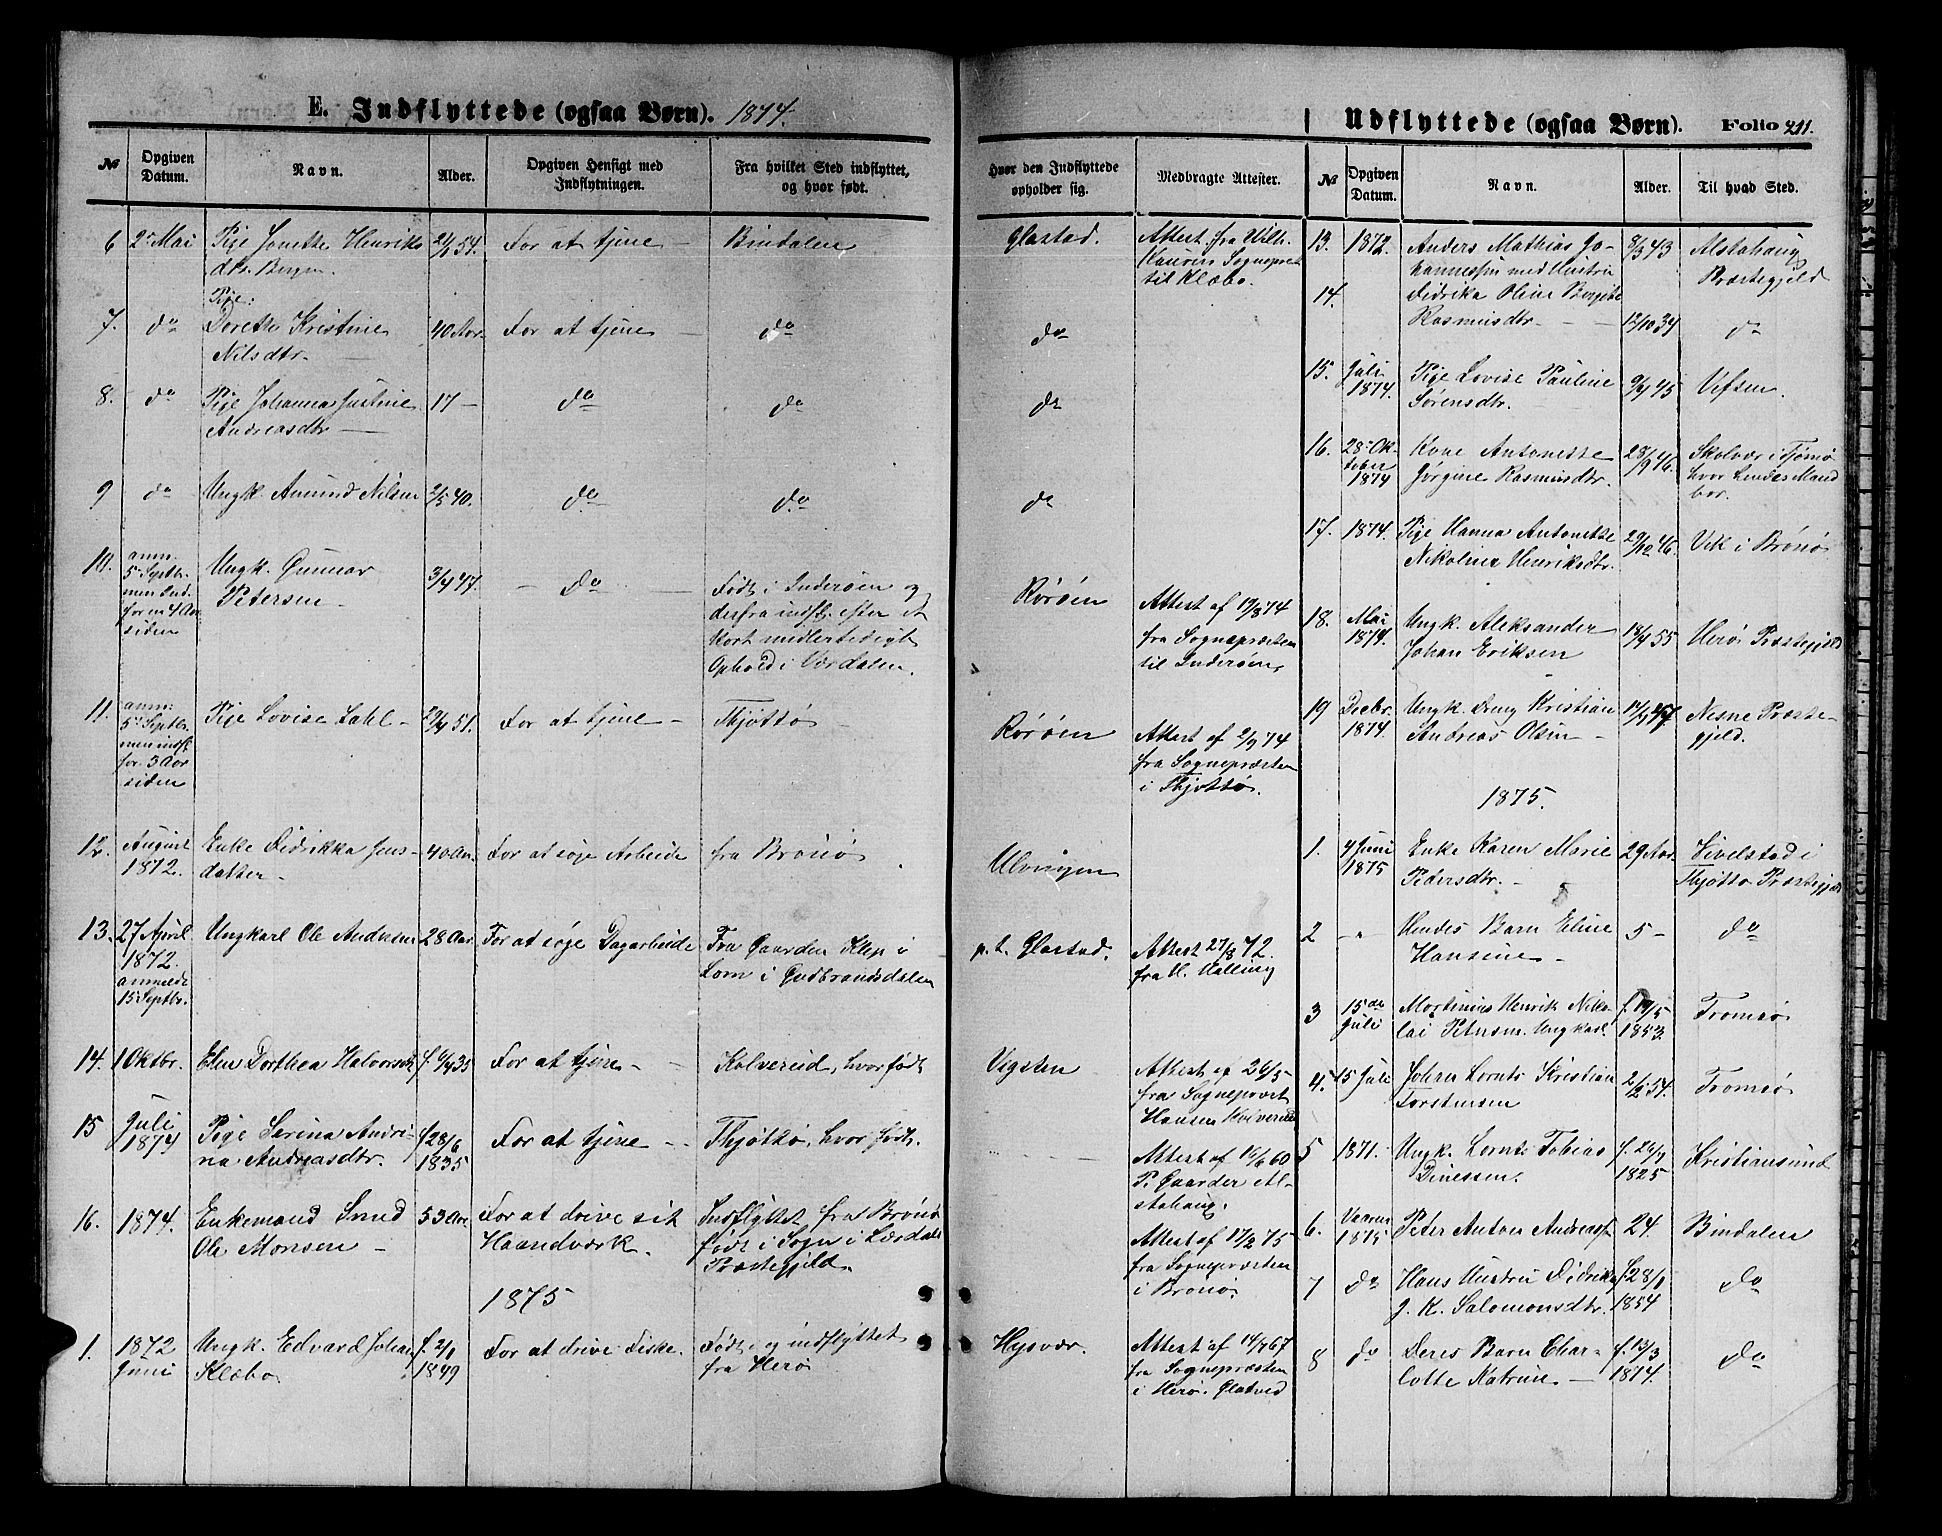 E. Indflyttede (ogsaa Børn). 1874.
№
Opgiven Datum.
Navn.
Alder.
Opgiven Hensigt med Indflytningen.
Fra hvilket Sted indflyttet, og hvor født.
6 2den Mai Pige Jonette Henriks 21/1 54. For at tjene — Bindalen
dtr. Bergem
Pige:
7. do Dorette Kristine 40 Aar. For at tjene do
Nilsdtr. —
8. do Pige Johanna Justine 17 — do do
Andreasdtr —
9 do Ungk. Amund Nilsen 2/5 40. do do
10. anm. 5 Septbr. Ungk. Gunnar Petersen 3/4 47. — do — Født i Inderøen og
men Ind. for en 4 Aar siden derfra indfl. efter et
kort midlertidigt
Ophold i Værdalen.
11. anm. 5 Septbr. Pige Lovise Dahl — 29/4 51. For at tjene — Thjøttø
men indfl. for 3 Aar siden
12. August Enke Didrikka Jens- 40 Aar. For at søge Arbeide fra Brønø
1872. datter —
13. 27 April Ungkarl Ole Andersen 28 Aar For at søge Dagarbeide Fra Gaarden Klep i
1872. Lom i Gudbrandsdalen
anmeldt
15 Septbr.
14. 1 Oktbr. Elen Dorthea Halvorsdtr f. 6/4 35 For at tjene — Kolvereid, hvor født
15 Juli Pige Serina Andri- f. 28/6 For at tjene — Thjøttø, hvor født.
1874 na Andreasdtr. 1835
16. 1874. Enkemand Smed 53 Aar For at drive sit Indflyttet fra Brønø
Ole Monsen — Haandværk. født i Sogn i Lærdals
Præstegjeld.
1875
1. 1872 Ungk. Edvard Johan f. 2/1 For at drive Fiske. Født og indflyttet
Juni Klæbo 1849 fra Herø
Udflyttede (ogsaa Børn). Folio 211.
Hvor den Indflyttede opholder sig.
Medbragte Attester.
№
Opgiven Datum.
Navn.
Alder.
Til hvad Sted.
Glastad. Attest fra Wilh.
Sognepræst
til Klæbo.
do
do
do
Rørøen Attest af 19/8 74
fra Sognepræsten
til Inderøen,
Rørøen Attest af 2/9 74
fra Sognepræsten
i Thjøttø.
Ulvingen
p. t. Glastad. Attest 27/8 72.
fra H. Halling
Vigsten Attest af 26/5
fra Sognepræst
Hansen Kolvereid
Attest af 16/6 60
P. Gaarder Al-
stahaug.
Attest af 17/2 75
fra Sognepræsten
i Brønø.
Hysvær. Attest af 14/7 67
fra Sognepræsten
i Herø. Glatved
13. 1872. Anders Mathias Jo- 8/3 43 Alstahaug
hannessen med Hustru Præstegjeld
14. Didrika Oline Bergitte
Rasmusdtr. — 12/10 34 do
15. Juli Pige Lovise Pauline 9/4 45 Vefsen.
1874. Sørensdtr.
16. 28de Ok- Kone Antonette 28/9 46. Skolvær i Tjømø
tober Jørgine Rasmusdtr. hvor hendes Mand
1874 bor.
17. 1874. Pige Hanna Antonette 29/12 46. Vik i Brønø
Nikoline Henriksdtr.
18. Mai Ungk. Aleksander 18/4 55 Herø Præstegjeld
1874. Johan Eriksen
19 Decbr. Ungk. Kristian Nesne Præste-
1874. Andreas Olsen — gjeld.
1875.
1. 4 Juni Enke Karen Marie 29 Aar Sivelstad i
1875 Pedersdtr. — Thjøttø Præstegjeld
2 — " Hendes Barn Eline 5 — do
Hansine —
3 15de Martinus Henrik Niko- f. 19/5 Tromsø
Juli lai Petersen Ungkarl. 1853.
4. 15 Juli Johan Lornts Kristian 2/2 54. Tromsø
Torstensen
5 1871. Ungk. Lornts Tobias f. 26/9 Kristiansund
Dinessen. 1825
6. Vaaren Peter Anton Andreass. 24. Bindalen
1875
7 do Hans Hustru Didrika f. 28/1 do
J. K. Salomonsdtr. 1854
8 do Deres Barn Char- f. 13/3 do
lotte Katrine — 1874.